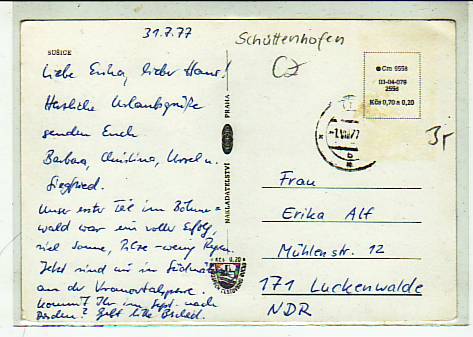 31.7.77
Schüttenhofen
CZ
SUŠICE
Liebe Erika, lieber Hans!
Herzliche Urlaubsgrüße
senden Euch
Barbara, Christina, Ursel u.
Siegfried.
Unser erster Teil im Böhmer=
wald war ein voller Erfolg,
viel Sonne, Pilze - wenig Regen.
Jetzt sind wir im
an der Vranovtalsperre.
Kommt Ihr im Sept. nach
Dresden? Gebt bitte Bescheid.
NAKLADATELSTVÍ PRAHA
Kčs 0,20
Cm 9558
03-04-078
2558
Kčs 0,70 a 0,20
77
3,-
Frau
Erika Alf
Mühlenstr. 12
171 Luckenwalde
NDR